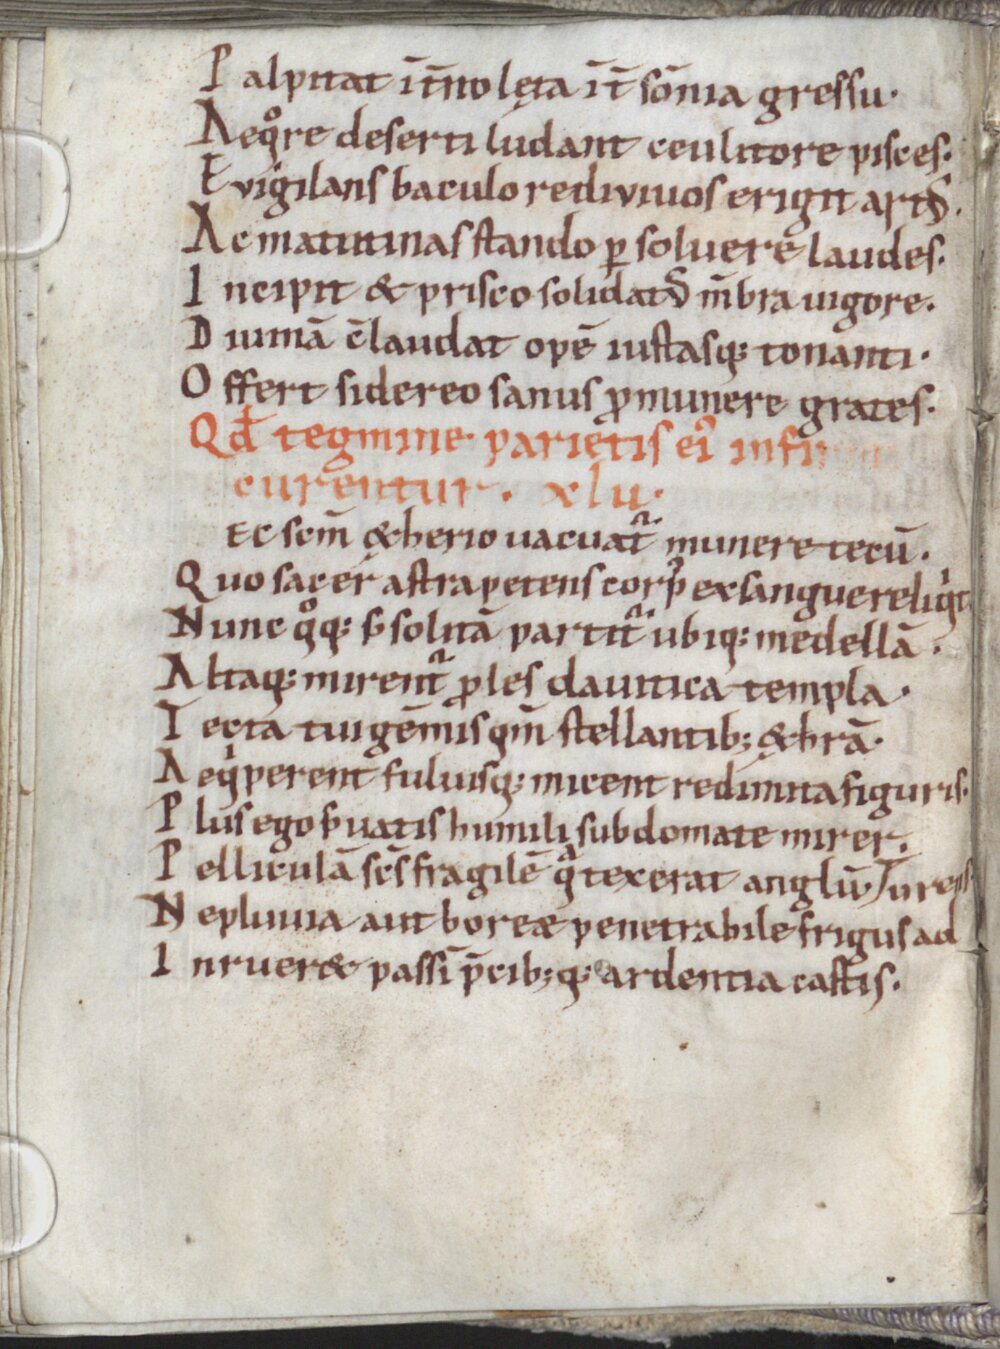 P alpitat īt̄no lęta īt̄ sōnia gressu.
A eq̊re deserti ludant ceu litore pisces.
E vigilans baculo redivivos erigit art᷒.
A c matutinas stando ꝑ soluere laudes.
I ncipit & prisco solidat᷒ m̄bra uigore.
D iuinā c̄laudat opē iustasq; tonanti.
O ffert sidereo sanus ꝓ munere grates.
Qd̄ tegmine parietis ei᷒ infir
curentur. xlu.
Ec scm̄ &herio uacuat᷑ munere tecū.
Q uo sacer astra petens corp᷒ exsangue reliqͥt
N unc q̊q; s̄ solitā partit᷑ ubiq; medellā.
A ltaq; mirent᷑ ꝓles dauitica templa.
T ecta tui gēmis qm̄ stellantib; &hrā.
A eqͥperent fuluisq; micent redimita figuris.
P lus ego s̄ uatis humili sub domate mirer.
P elliculā scs̄ fragilē qͣ texerat anglū.
N e pluuia aut boreæ penetrabile frigus ad
I nruer& passī p̄cib; q; ardentia castis.